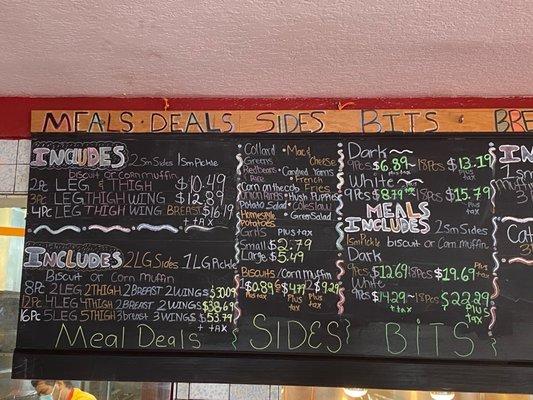 MEALS·DEALS SIDES BITS BRE
INCLUDES 2 Sm Sides 1 Sm Pickle
biscuit or corn muffin
2Pc LEG & THIGH $10.49
3Pc LEG THIGH WING $12.89
4Pc LEG THIGH WING BREAST $16.19
+ TAX
INCLUDES 2 LG Sides 1 LG Pickle
Biscuit or Corn muffin
8Pc 2 LEG 2 THIGH 2 Breast 2 WINGS
12Pc 4 LEG 4 THIGH 2 Breast 2 WINGS $38.69
16Pc 5 LEG 5 THIGH 3 breast 3 WINGS $53.79
+ TAX
Meal Deals
Collard Greens
• Mac & Cheese
• French Fries
Corn on the cob
• Hush Puppies
Potato Salad
• Coleslaw
Homestyle Potatoes
• Green Salad
plus tax
Small $2.79
Large $5.49
Biscuits / Corn muffin
$0.89 $4.79 $9.29
plus tax
Plus tax
Plus tax
SIDES
Dark
9Pcs $6.89 18Pcs $13.19
plus tax
Plus tax
White
9Pcs 18Pcs $15.79
plus tax
Plus tax
MEALS INCLUDES 2 Sm Sides
1 Sm Pickle biscuit or Corn muffin
Dark
9Pcs $12.69 18Pcs $19.69
plus tax
White
9Pcs $14.29 18Pcs $22.29
+ tax
Plus tax
BITS
IN